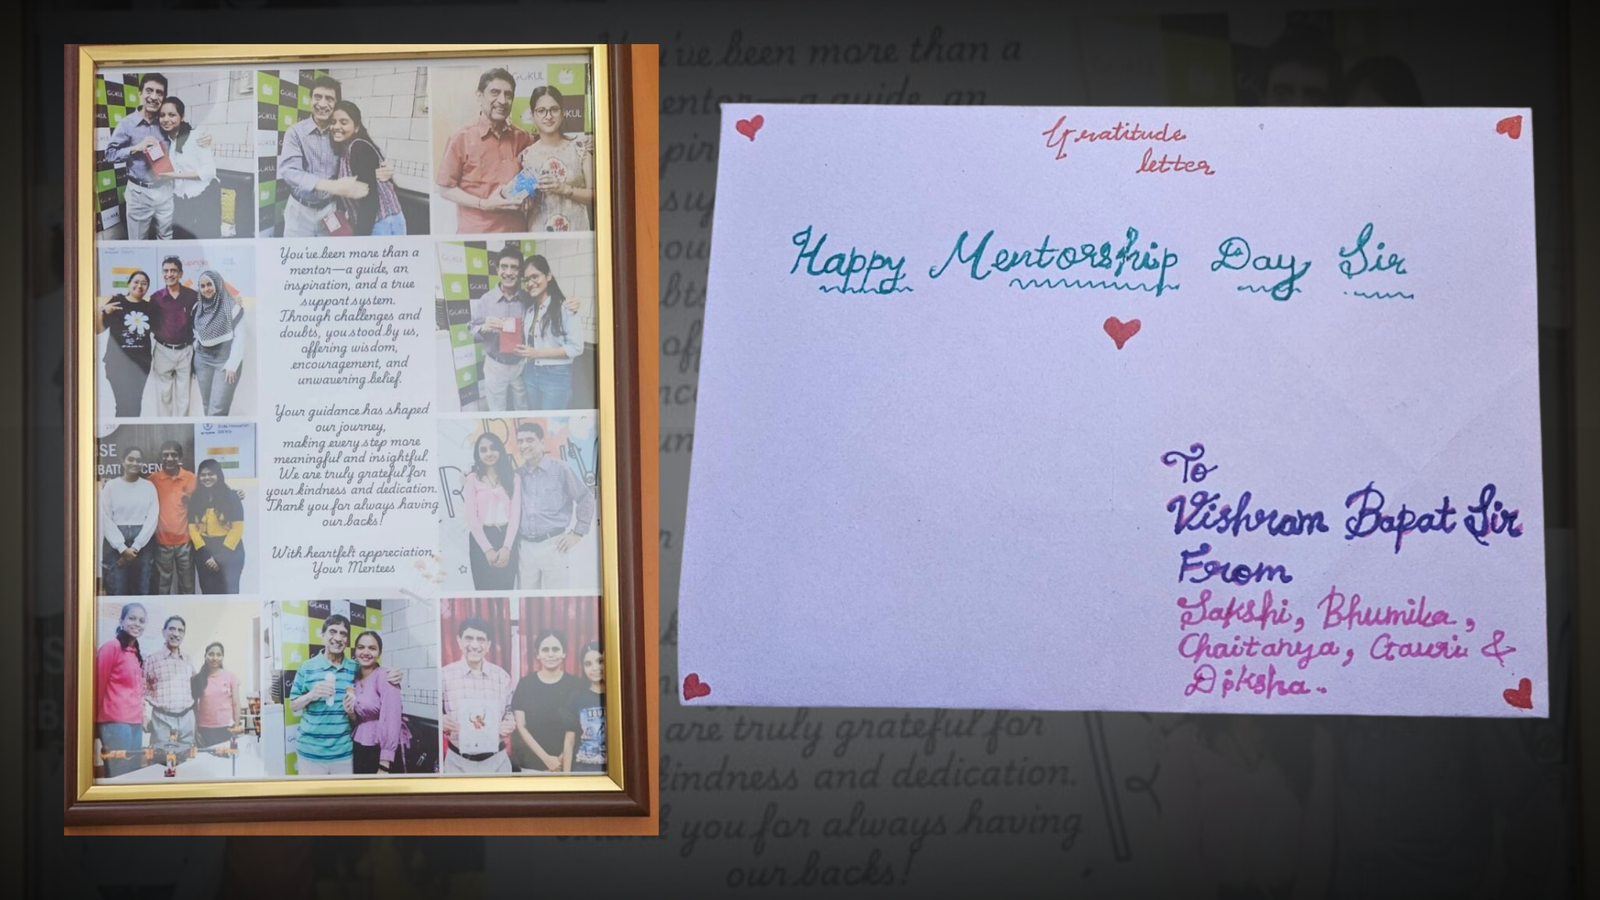 You've been more than a
mentor—a guide, an
inspiration, and a true
support system.
Through challenges and
doubts, you stood by us,
offering wisdom,
encouragement, and
unwavering belief.
Your guidance has shaped
our journey,
making every step more
meaningful and insightful.
We are truly grateful for
your kindness and dedication.
Thank you for always having
our backs!
With heartfelt appreciation,
Your Mentees
GOKUL
GOKUL
Gratitude
letter
Happy Mentorship Day Sir
To
Vishram Bapat Sir
From
Sakshi, Bhumika,
Chaitanya, Gauri &
Diksha.